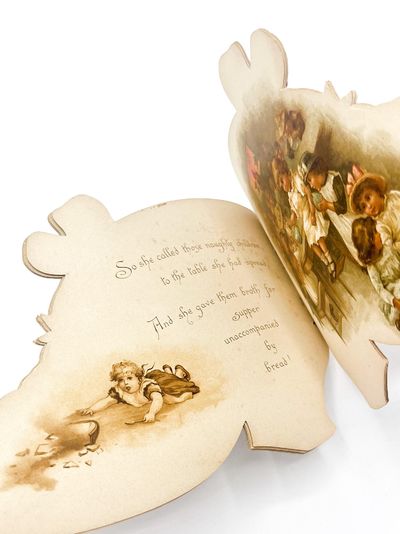 So she called those naughty children
to the table she had spread,
And she gave them broth for
supper
unaccompanied
by
bread!